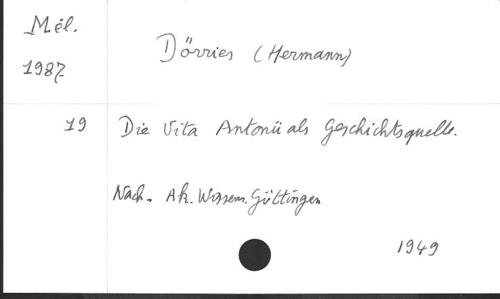 Mél.
1987
Dörries (Hermann)
19 Die Vita Antonii als Geschichtsquelle.
Nach. Ak. Wissen. Göttingen
1949